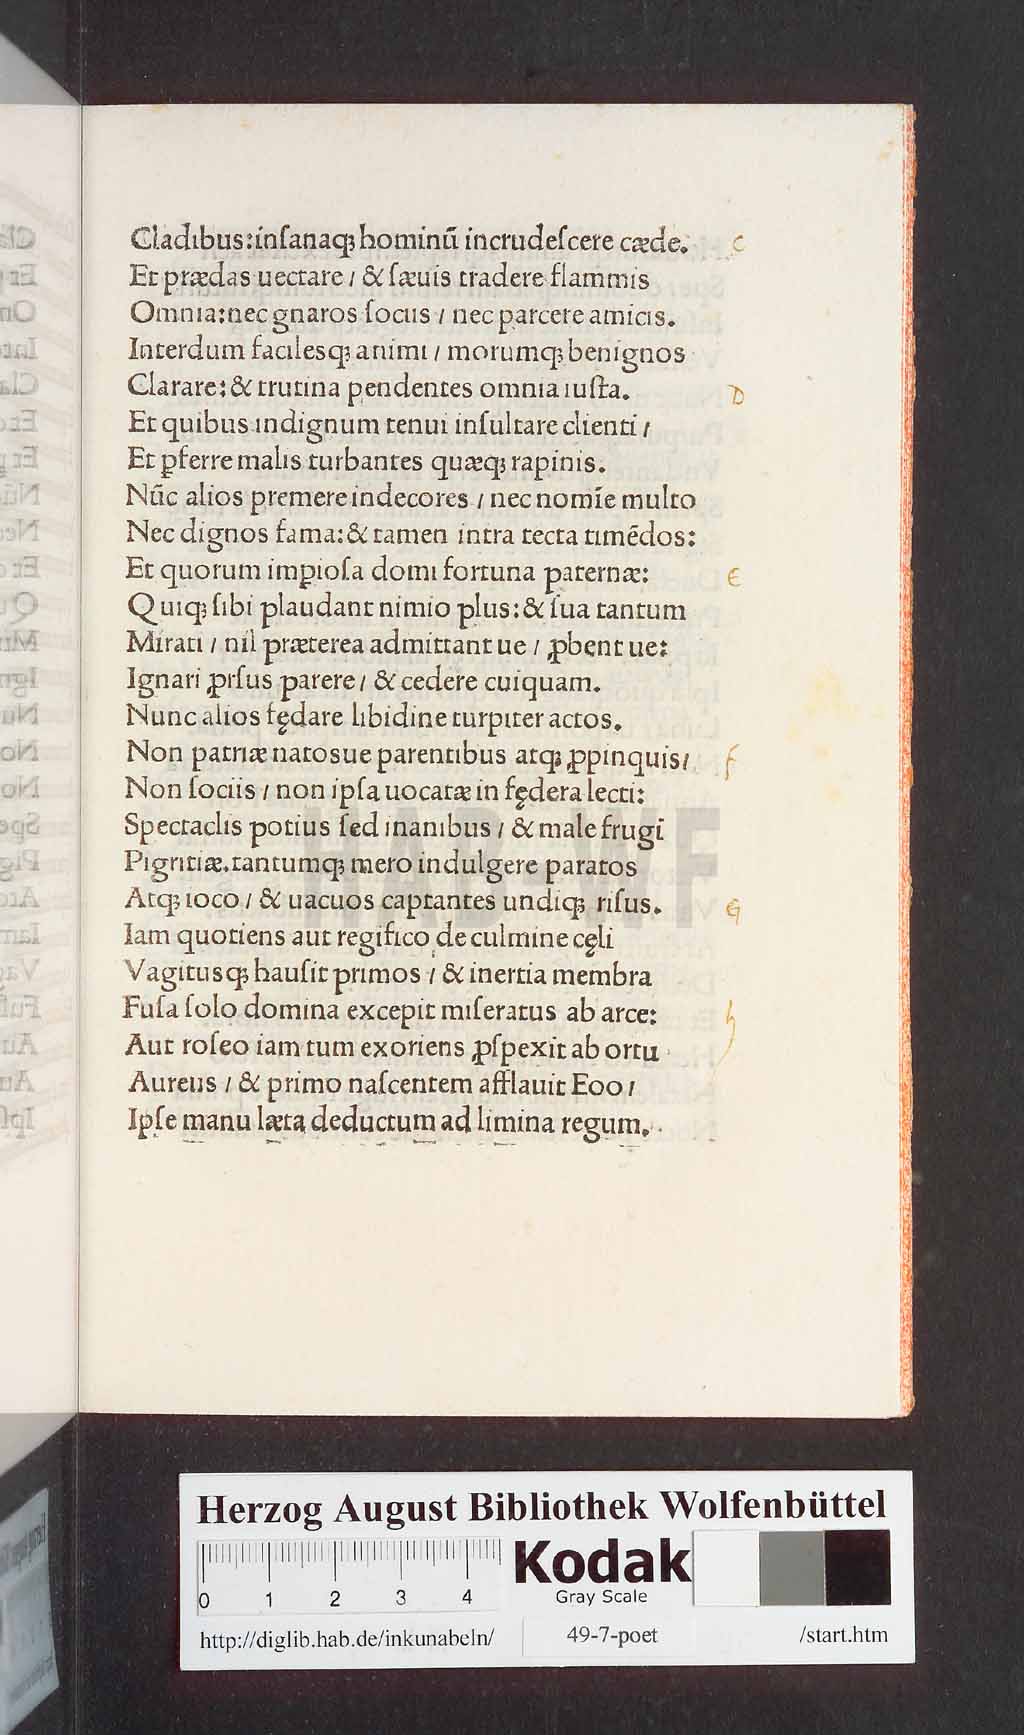 Cladibus:inſanaqꝫ hominū incrudeſcere cæde. C
Et prædas uectare / & ſæuis tradere flammis
Omnia:nec gnaros ſocius / nec parcere amicis.
Interdum facilesqꝫ animi / morumqꝫ benignos
Clarare:& trutina pendentes omnia iuſta. D
Et quibus indignum tenui inſultare clienti /
Et ꝑferre malis turbantes quæqꝫ rapinis.
Nūc alios premere indecores / nec nomīe multo
Nec dignos fama:& tamen intra tecta timēdos:
Et quorum impioſa domi fortuna paternæ: E
Quiqꝫ ſibi plaudant nimio plus:& ſua tantum
Mirati / nil præterea admittant ue / ꝓbent ue:
Ignari ꝓrſus parere / & cedere cuiquam.
Nunc alios fędare libidine turpiter actos.
Non patriæ natosue parentibus atqꝫ ꝓpinquis / f
Non ſociis / non ipſa uocatæ in fędera lecti:
Spectaclis potius ſed inanibus / & male frugi
Pigritiæ.tantumqꝫ mero indulgere paratos
Atqꝫ ioco / & uacuos captantes undiqꝫ riſus. G
Iam quotiens aut regifico de culmine cęli
Vagitusqꝫ hauſit primos / & inertia membra
Fuſa ſolo domina excepit miſeratus ab arce: h
Aut roſeo iam tum exoriens ꝓſpexit ab ortu
Aureus / & primo naſcentem afflauit Eoo /
Ipſe manu læta deductum ad limina regum.
HAB-WF
Herzog August Bibliothek Wolfenbüttel
0 1 2 3 4
Kodak
Gray Scale
http://diglib.hab.de/inkunabeln/ 49-7-poet /start.htm